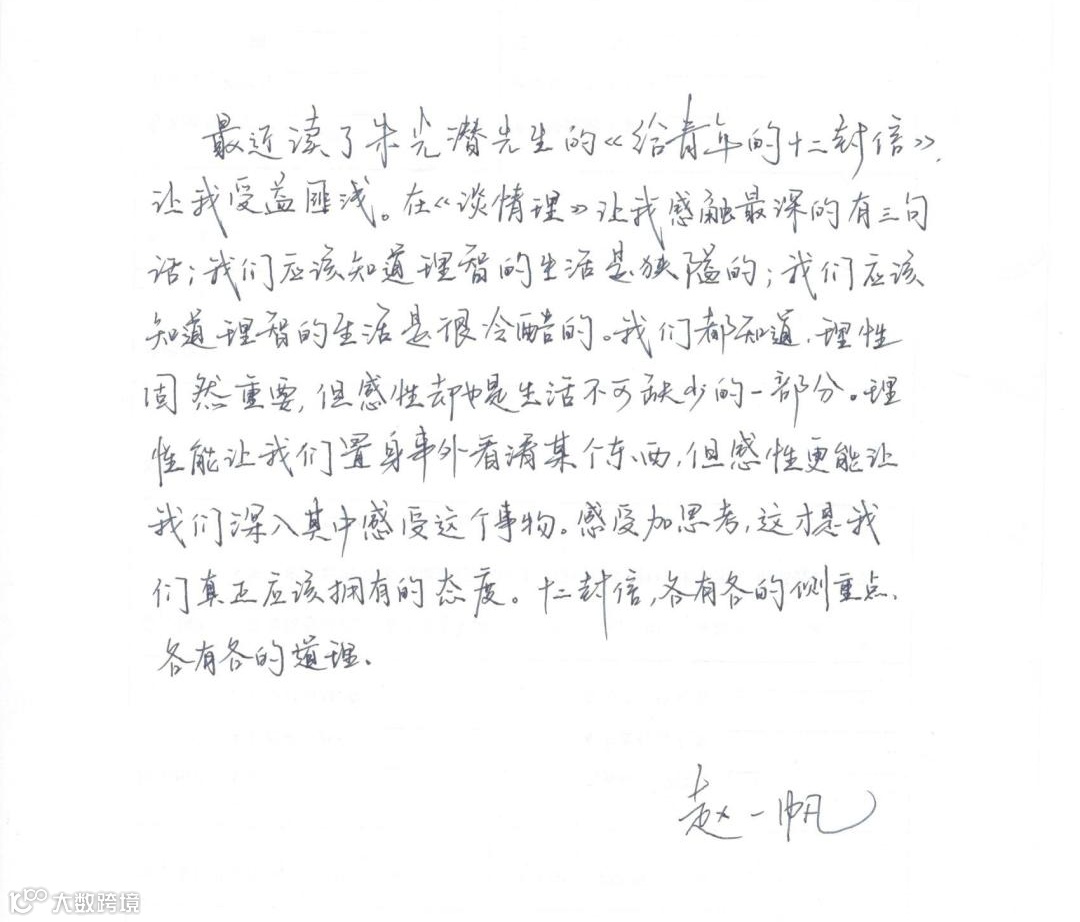 最近读了朱光潜先生的《给青年的十二封信》,
让我受益匪浅。在《谈情理》让我感触最深的有三句
话;我们应该知道理智的生活是狭隘的;我们应该
知道理智的生活是很冷酷的。我们都知道,理性
固然重要,但感性却也是生活不可缺少的一部分。理
性能让我们置身事外看清某个东西,但感性更能让
我们深入其中感受这个事物。感受加思考,这才是我
们真正应该拥有的态度。十二封信,各有各的侧重点,
各有各的道理.
赵一帆
大数跨境